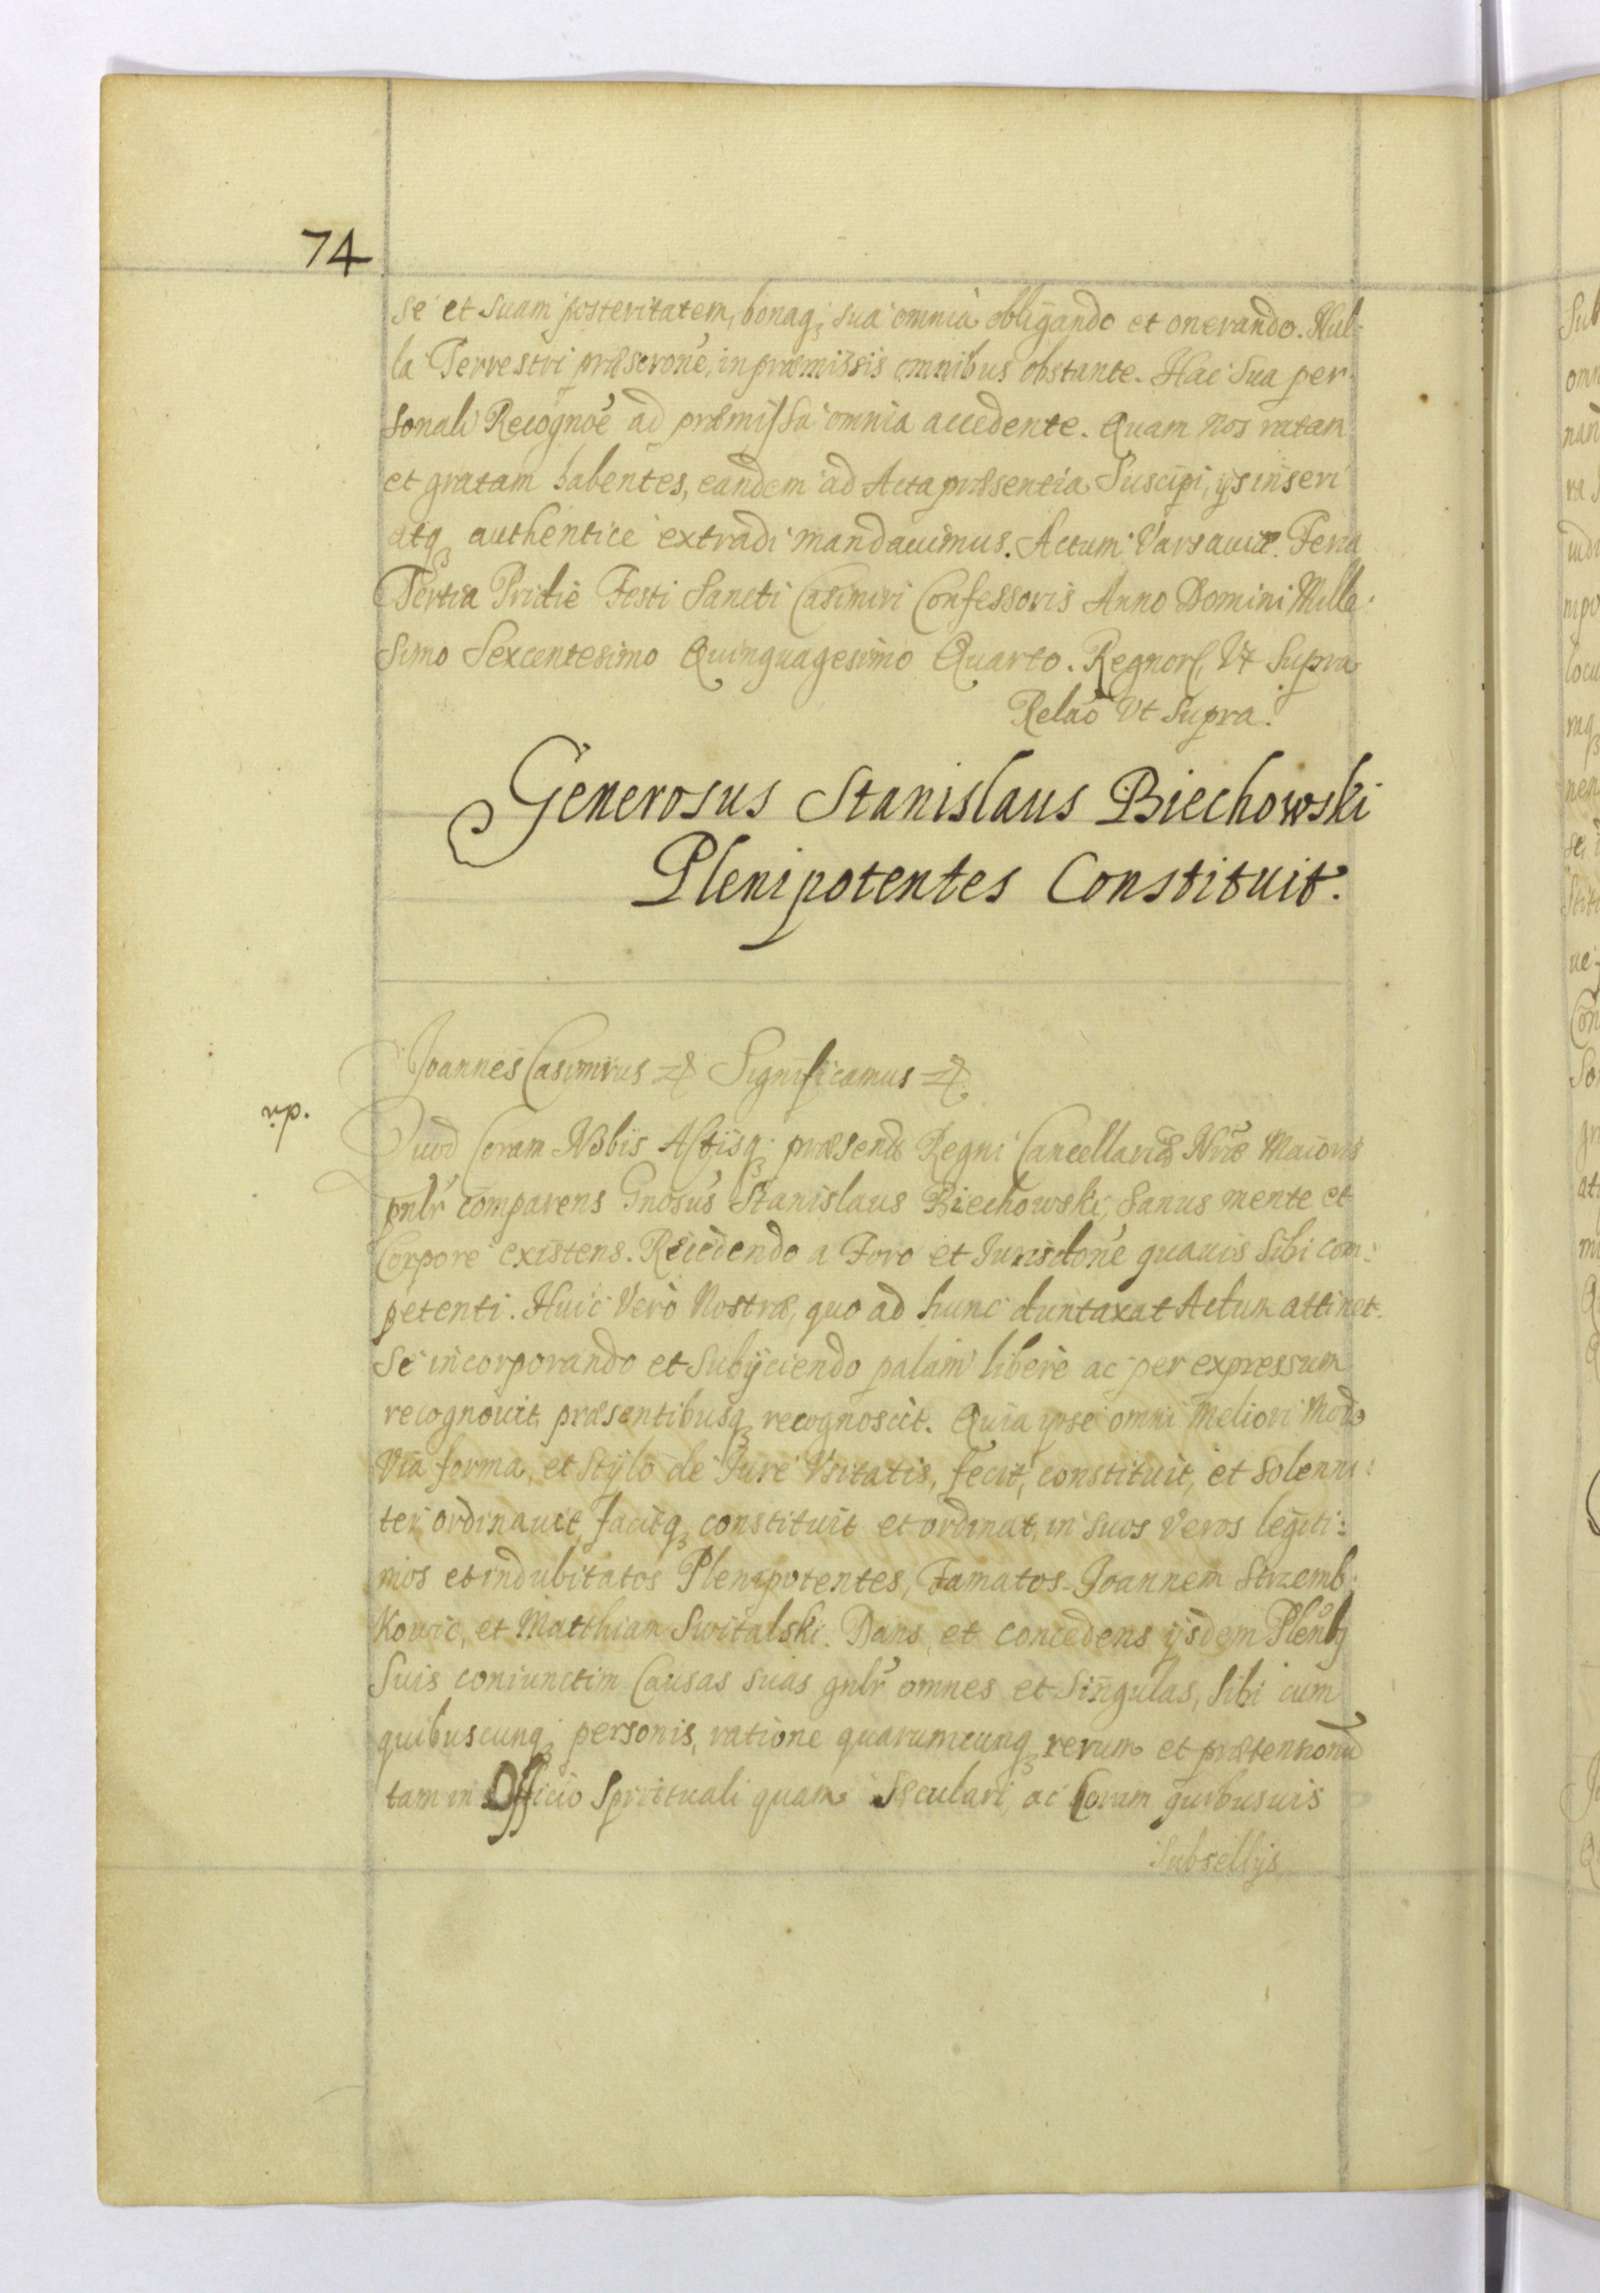 74
se et suam posteritatem, bonaq; sua omnia obligando et onerando. Nul-
la Terrestri præscrone, in præmissis omnibus obstante. Hac sua per-
sonali Recognoe ad præmissa omnia accedente. Quam nos ratam
et gratam habentes, eandem ad Acta præsentia Suscipi, ijs inseri
atq; authentice extradi mandauimus. Actum Varsauiæ. Feria
Tertia Pridie Festi Sancti Casimiri Confessoris Anno Domini Mille-
simo Sexcentesimo Quinquagesimo Quarto. Regnor, Vt Supra
Relao Vt Supra.
Generosus Stanislaus Biechowski
Plenipotentes Constituit.
Joannes Casimirus Significamus
rp.
Quod Coram Nobis Actisq; præsend Regni Cancellariæ Nræ Maioris
pnlr comparens Gnosus Stanislaus Biechowski, Sanus mente et
Corpore existens. Recedendo a Foro et Jurisdone quauis sibi com:
petenti. Huic Vero Nostræ, quo ad hunc duntaxat Actum attinet.
Se incorporando et Subijciendo palam libere ac per expressum
recognouit, præsentibusq; recognoscit. Quia ipse omni meliori Modo
Via forma, et stylo de Jure Vsitatis, fecit, constituit, et solenni:
ter ordinauit, facitq; constituit et ordinat, in suos Veros legiti:
mos et indubitatos Plenipotentes, Famatos Joannem Strzemb:
Kowic, et Matthiam Switalski. Dans, et concedens ijsdem Plenbj
Suis coniunctim Causas suas gnlr omnes et Singulas, Sibi cum
quibuscunq; personis, ratione quarumcunq; rerum et prætensionu
tam in Officio Spirituali quam Sæculari, ac Coram quibusuis
Subsellijs